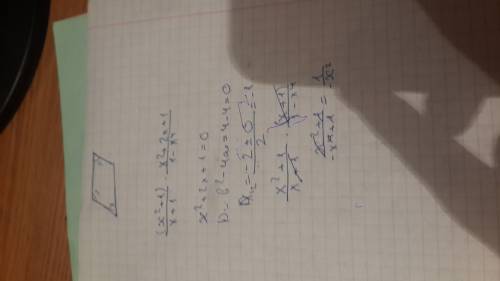 (x²+1)/(x+1) · (x²+2x+1)/(1-x⁴)
x²+2x+1=0
D=b²-4ac=4-4=0
x₁,₂=(-2±0)/2=-1
(x²+1)/(x+1) · (x+1)/(1-x⁴)